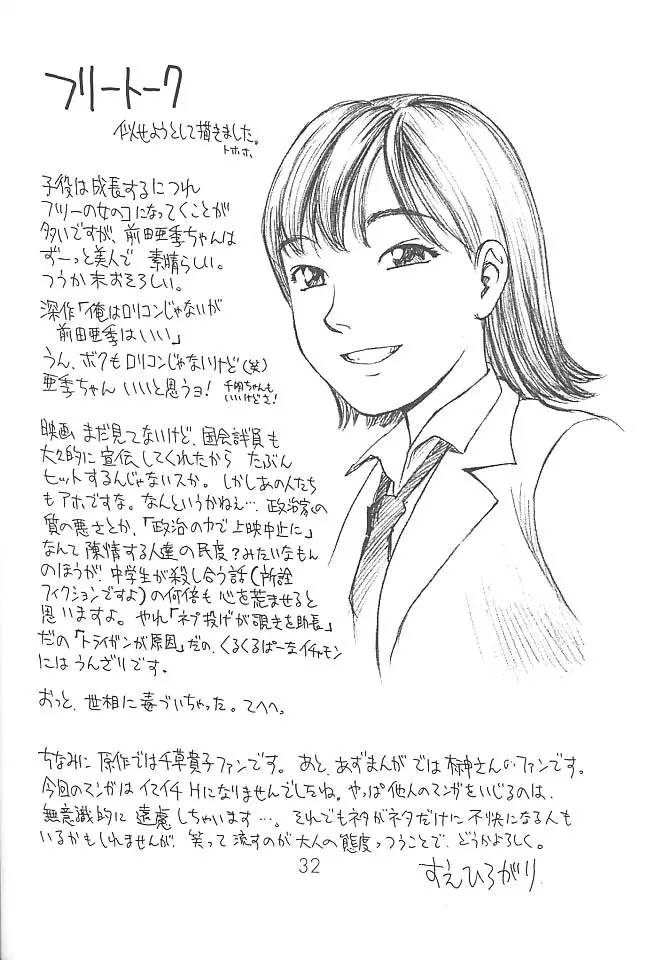 フリートーク
似せようとして描きました。
トホホ
子役は成長するにつれ
フツーの女のコになってくことが
多いですが、前田亜季ちゃんは
ずーっと美人で 素晴らしい。
つうか末おそろしい。
深作「俺はロリコンじゃないが
前田亜季はいい」
うん、ボクもロリコンじゃないけど(笑)
亜季ちゃん いいと思うョ!
千明ちゃんも
いいけどさ!
映画 まだ見てないけど、国会議員も
大々的に宣伝してくれたから たぶん
ヒットするんじゃないスか。しかしあの人たち
もアホですな。なんというかねぇ…政治家の
質の悪さとか、「政治の力で上映中止に」
なんて陳情する人達の民度?みたいなもん
のほうが、中学生が殺し合う話(所詮
フィクションですよ)の何倍も心を荒ませると
思いますよ。やれ「ネプ投げが覗きを助長」
だの「トライガンが原因」だの、くるくるぱーなイチャモン
にはうんざりです。
おっと、世相に毒づいちゃった。てへへ。
ちなみに原作では千草貴子ファンです。あと、あずまんがでは榊さんのファンです。
今回のマンガはイマイチHになりませんでしたね。やっぱ他人のマンガをいじるのは、
無意識的に遠慮しちゃいます…。それでもネタがネタだけに不快になる人も
いるかもしれませんが、笑って流すのが大人の態度っつうことで、どうかよろしく。
32
すえひろがり